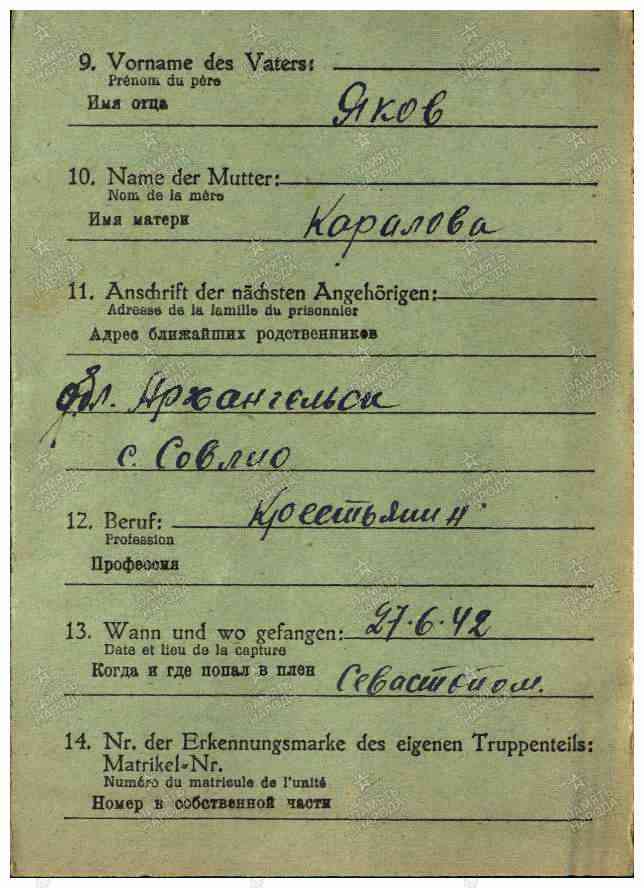 9. Vorname des Vaters:
Prénom du père
Имя отца
Яков
10. Name der Mutter:
Nom de la mère
Имя матери
Каралова
11. Anschrift der nächsten Angehörigen:
Adresse de la famille du prisonnier
Адрес ближайших родственников
обл. Архангельск
с. Совлио
12. Beruf: Крестьянин
Profession
Профессия
13. Wann und wo gefangen: 27.6.42
Date et lieu de la capture
Когда и где попал в плен Севастополь.
14. Nr. der Erkennungsmarke des eigenen Truppenteils:
Matrikel-Nr.
Numéro du matricule de l'unité
Номер в собственной части